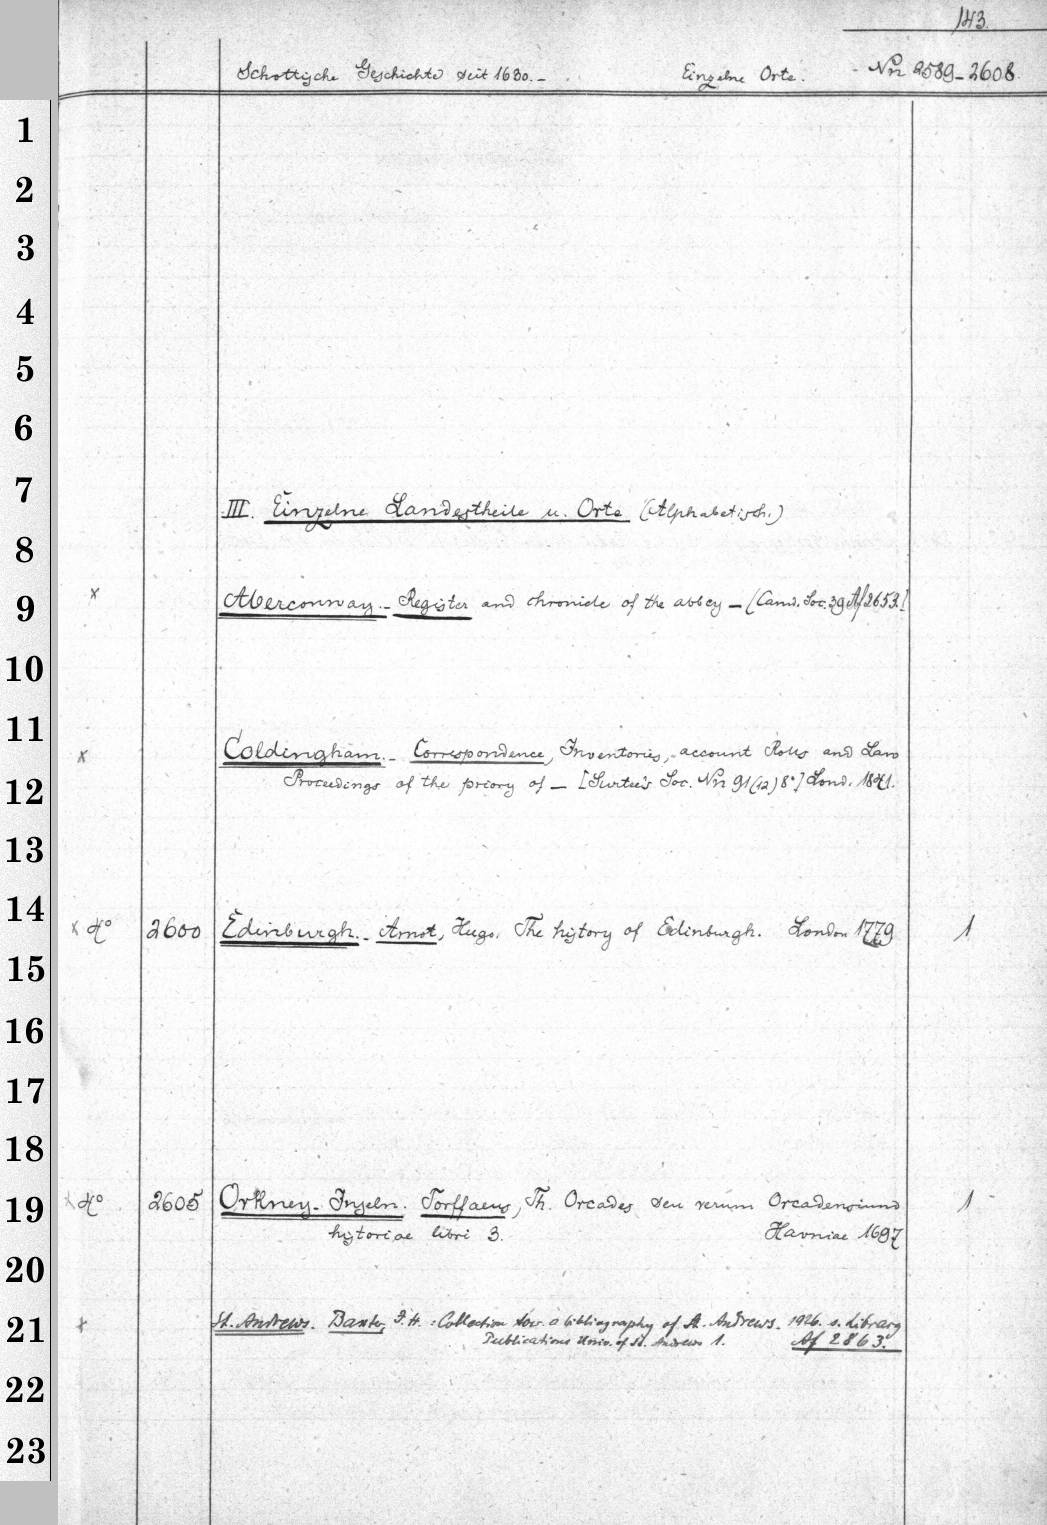 143.
Schottische Geschichte seit 1630.- Einzelne Orte. Nr. 2589-2608.
1
2
3
4
5
6
7
III. Einzelne Landestheile u. Orte (Alphabetisch.)
8
9 x Aberconway.- Register and chronicle of the abbey - [Camd. Soc. 39 Af 2653.]
10
11 x Coldingham.- Correspondence, Inventories, account Rolls and Law
12 Proceedings of the priory of - [Surtees Soc. Nr 91(12) 8°] Lond. 1841.
13
14 x 4° 2600 Edinburgh.- Arnot, Hugo. The history of Edinburgh. London 1779 1
15
16
17
18
19 x 4° 2605 Orkney-Inseln. Torffaeus, Th. Orcades seu rerum Orcadensium 1
historiae libri 3. Havniae 1697
20
21 x St. Andrews. Baxter, J. H.: Collection tow. a bibliography of St. Andrews. 1926. s. Library
Publications Univ. of St. Andrews 1. Af 2863.
22
23